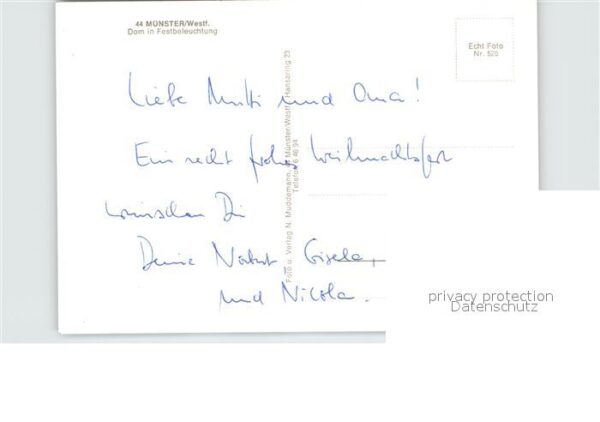 44 MÜNSTER/Westf.
Dom in Festbeleuchtung
Echt Foto
Nr. 525
Liebe Mutti und Oma!
Ein recht frohes Weihnachtsfest
wünschen Dir
Deine Norbert, Gisela,
und Nicola.
Foto u. Verlag N. Muddemann, 44 Münster/Westf. Hansaring 23
Telefon 6 46 94
privacy protection
Datenschutz